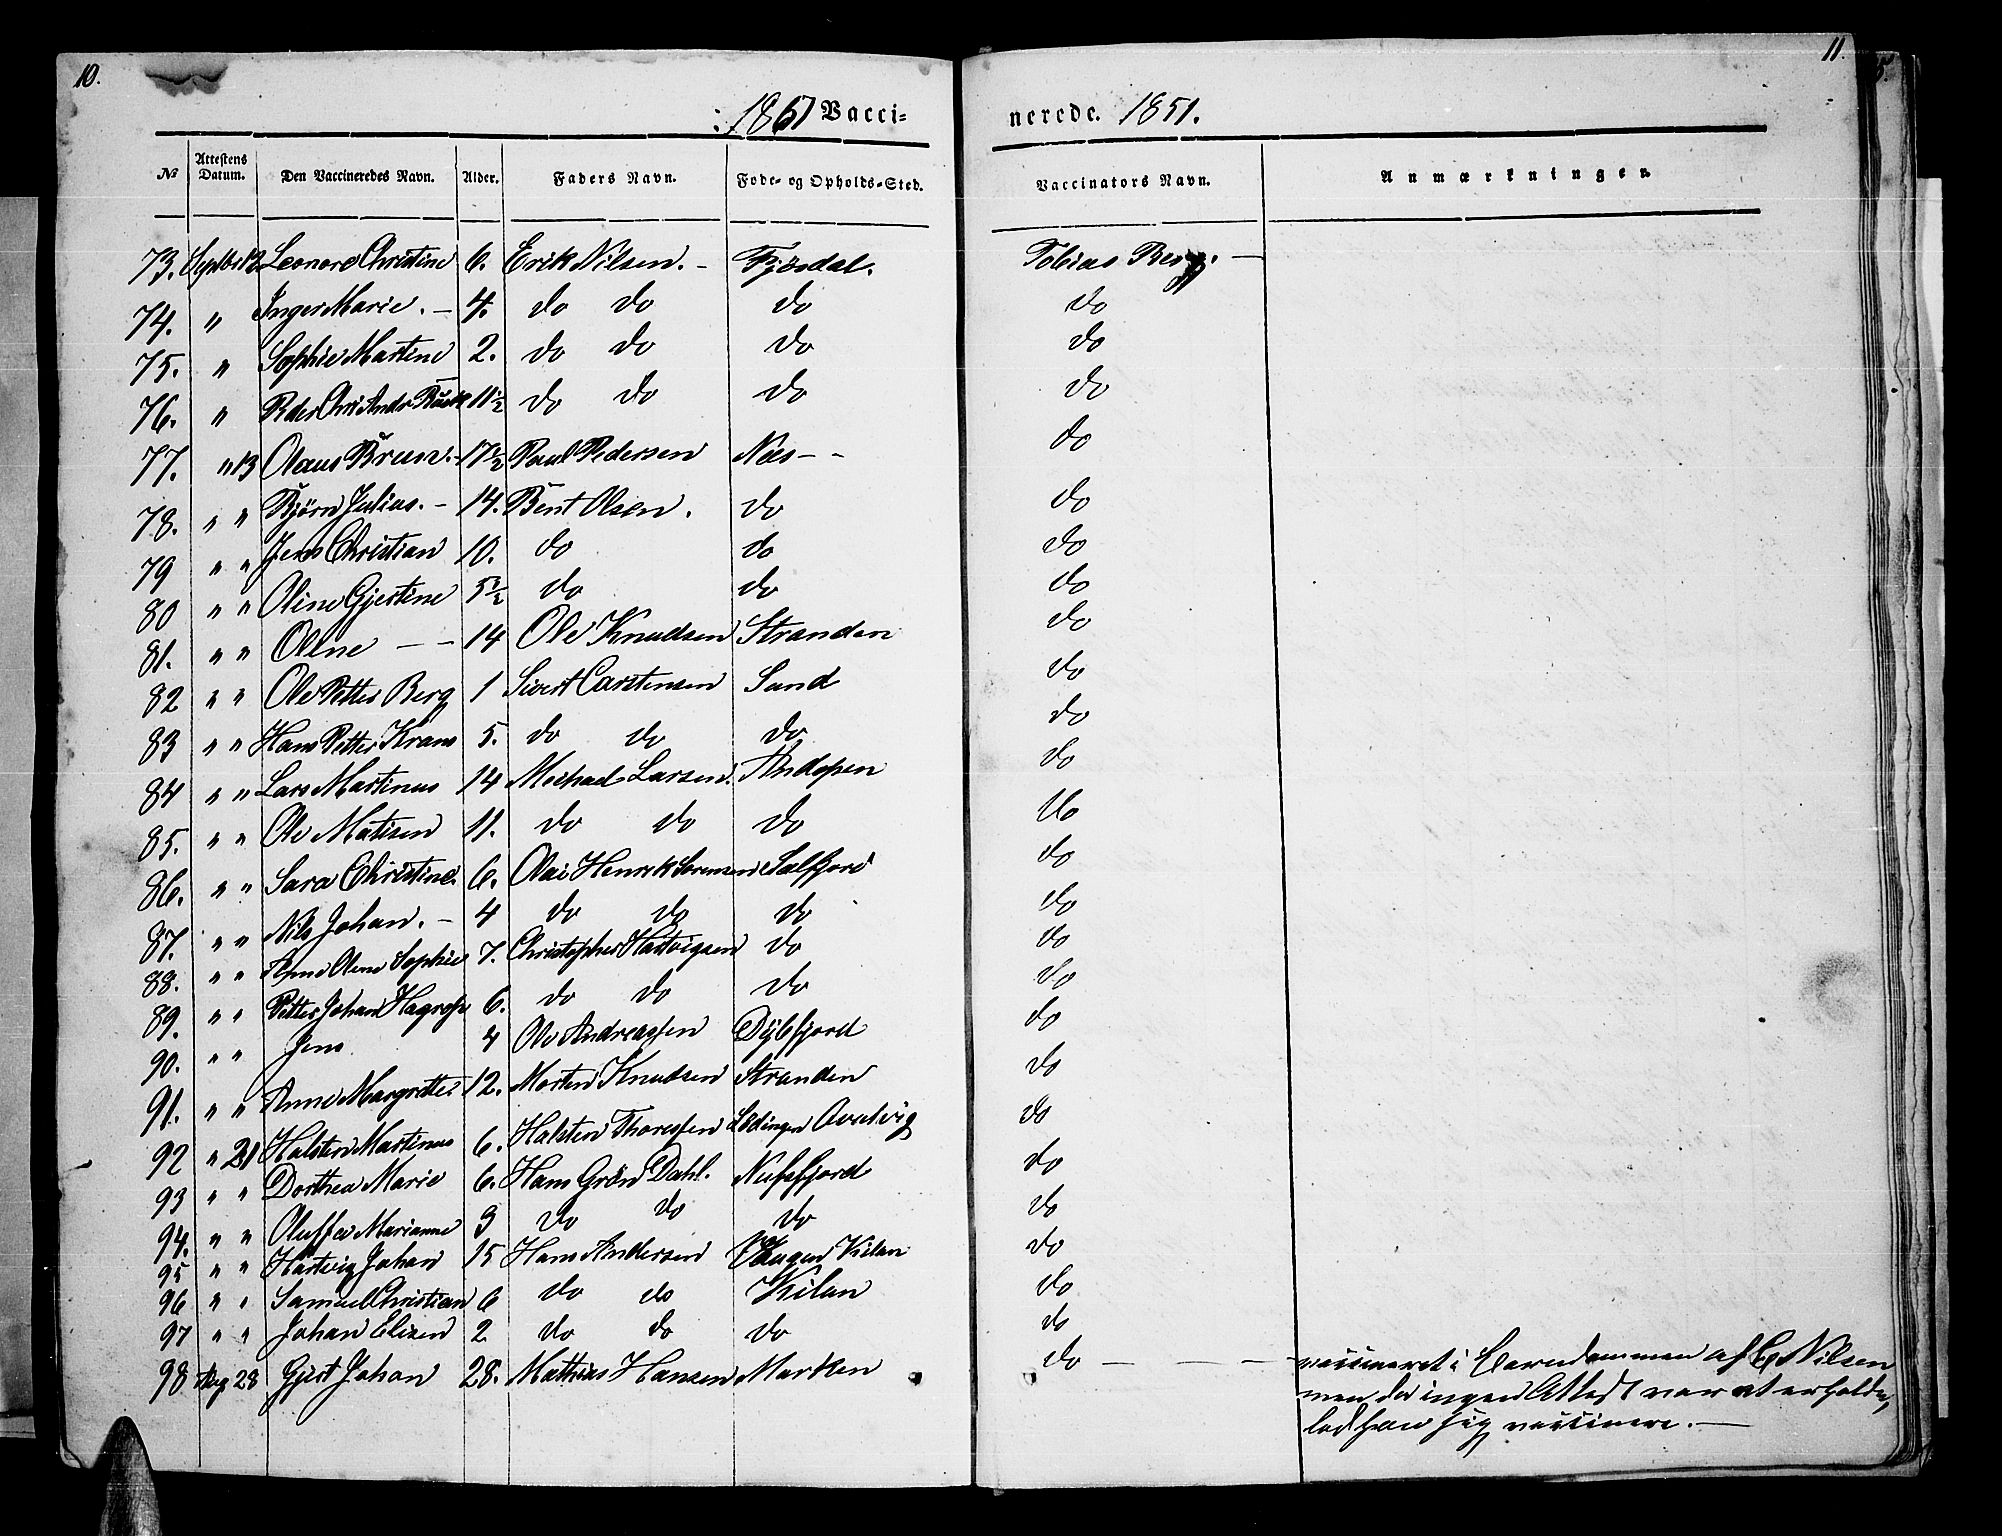 10.
11.
1867 Vacci=
nerede. 1851.
№ Attestens Datum. Den Vaccineredes Navn. Alder. Faders Navn. Føde= og Opholds=Sted. Vaccinators Navn. Anmærkninger.
73. Septbr 12 Leonore Christine 6. Erik Nilsen. – Fjøsdal. Tobias Berg. –
74. " Inger Marie. – 4. do do do do
75. " Sophie Martine 2. do do do do
76. " Peder Chri Andr 11½ do do do do
77. " 13 Olaus Bruun. 17½ Paul Pedersen Næs – – do
78. " " Bjørn Julius. – 14. Bent Olsen. do do
79 " " Jens Christian 10. do do do
80 " " Oline Gjertine 5½ do do do
81. " " Oline – – 14 Ole Knudsen Stranden do
82 " " Ole Petter Berg 1 Sivert Carstensen Sund do
83 " " Hans Petter Krane 5. do do do do
84 " " Lars Martinus 14 Michael Larsen. Andopen do
85. " " Ole Matisen 11. do do do do
86. " " Sara Christine. 6. Olai Henrik Sørensen Selfjord do
87. " " Nils Johan. – 4 do do do do
88. " " Anne Olene Sophie 7. Christopher Hartvigsen do do
89. " " Petter Johan 6. do do do do
90. " " Jens 4 Ole Andreassen Dybfjord do
91. " " Anne Margrethe 12. Morten Knudsen Stranden do
92 " 21 Halsten Martinus 6. Halsten Thoressen Lødingen do
93 " " Dorthea Marie 6. Hans Grön Dahl. Nufsfjord do
94. " " Oluffa Marianne 3 do do do do
95 " " Hartvig Johan 15 Hans Andersen Kilan do
96 " " Samuel Christian 6 do do Kilan do
97 " " Johan Elisen 2 do do do do
98 Aug 28 Gjert Johan 28. Mathias Hansen Marken do – – – vaccineret i Barndommen af C Nilsen
men da ingen Attest var at erholde,
lod han sig vaccinere. –